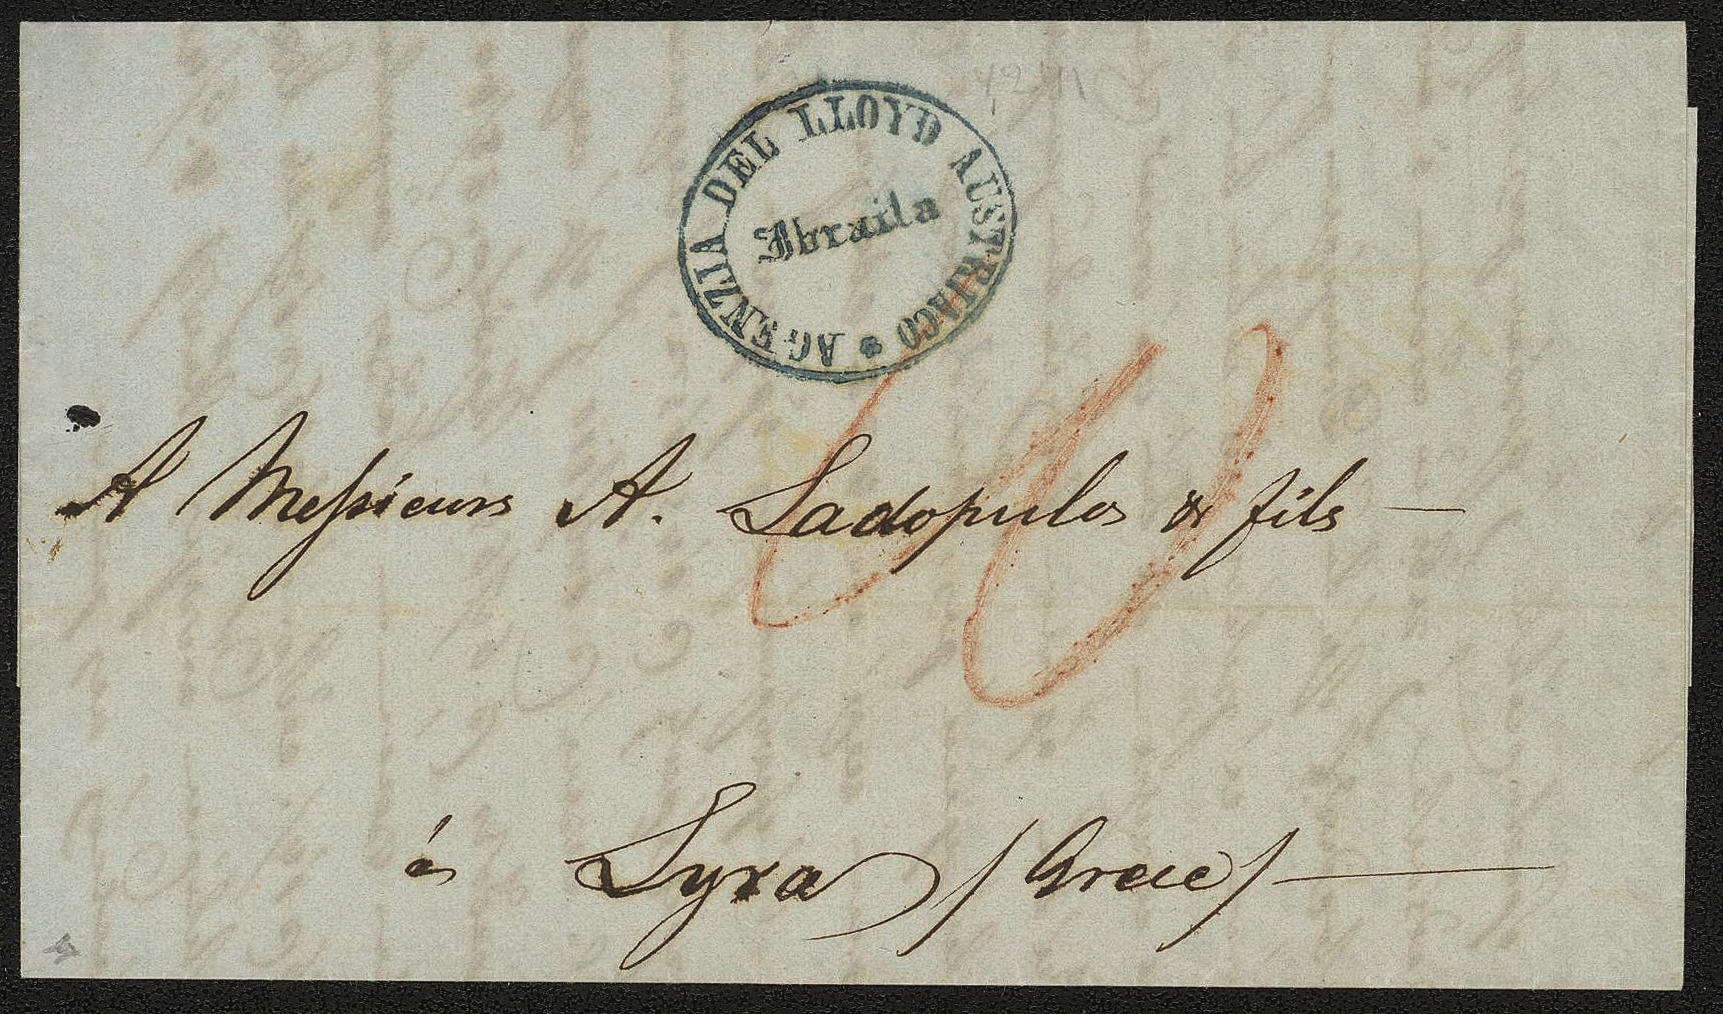 AGENZIA DEL LLOYD AUSTRIACO
Ibraila
A Messieurs A. Ladopulos & fils
à Syra / Grece /